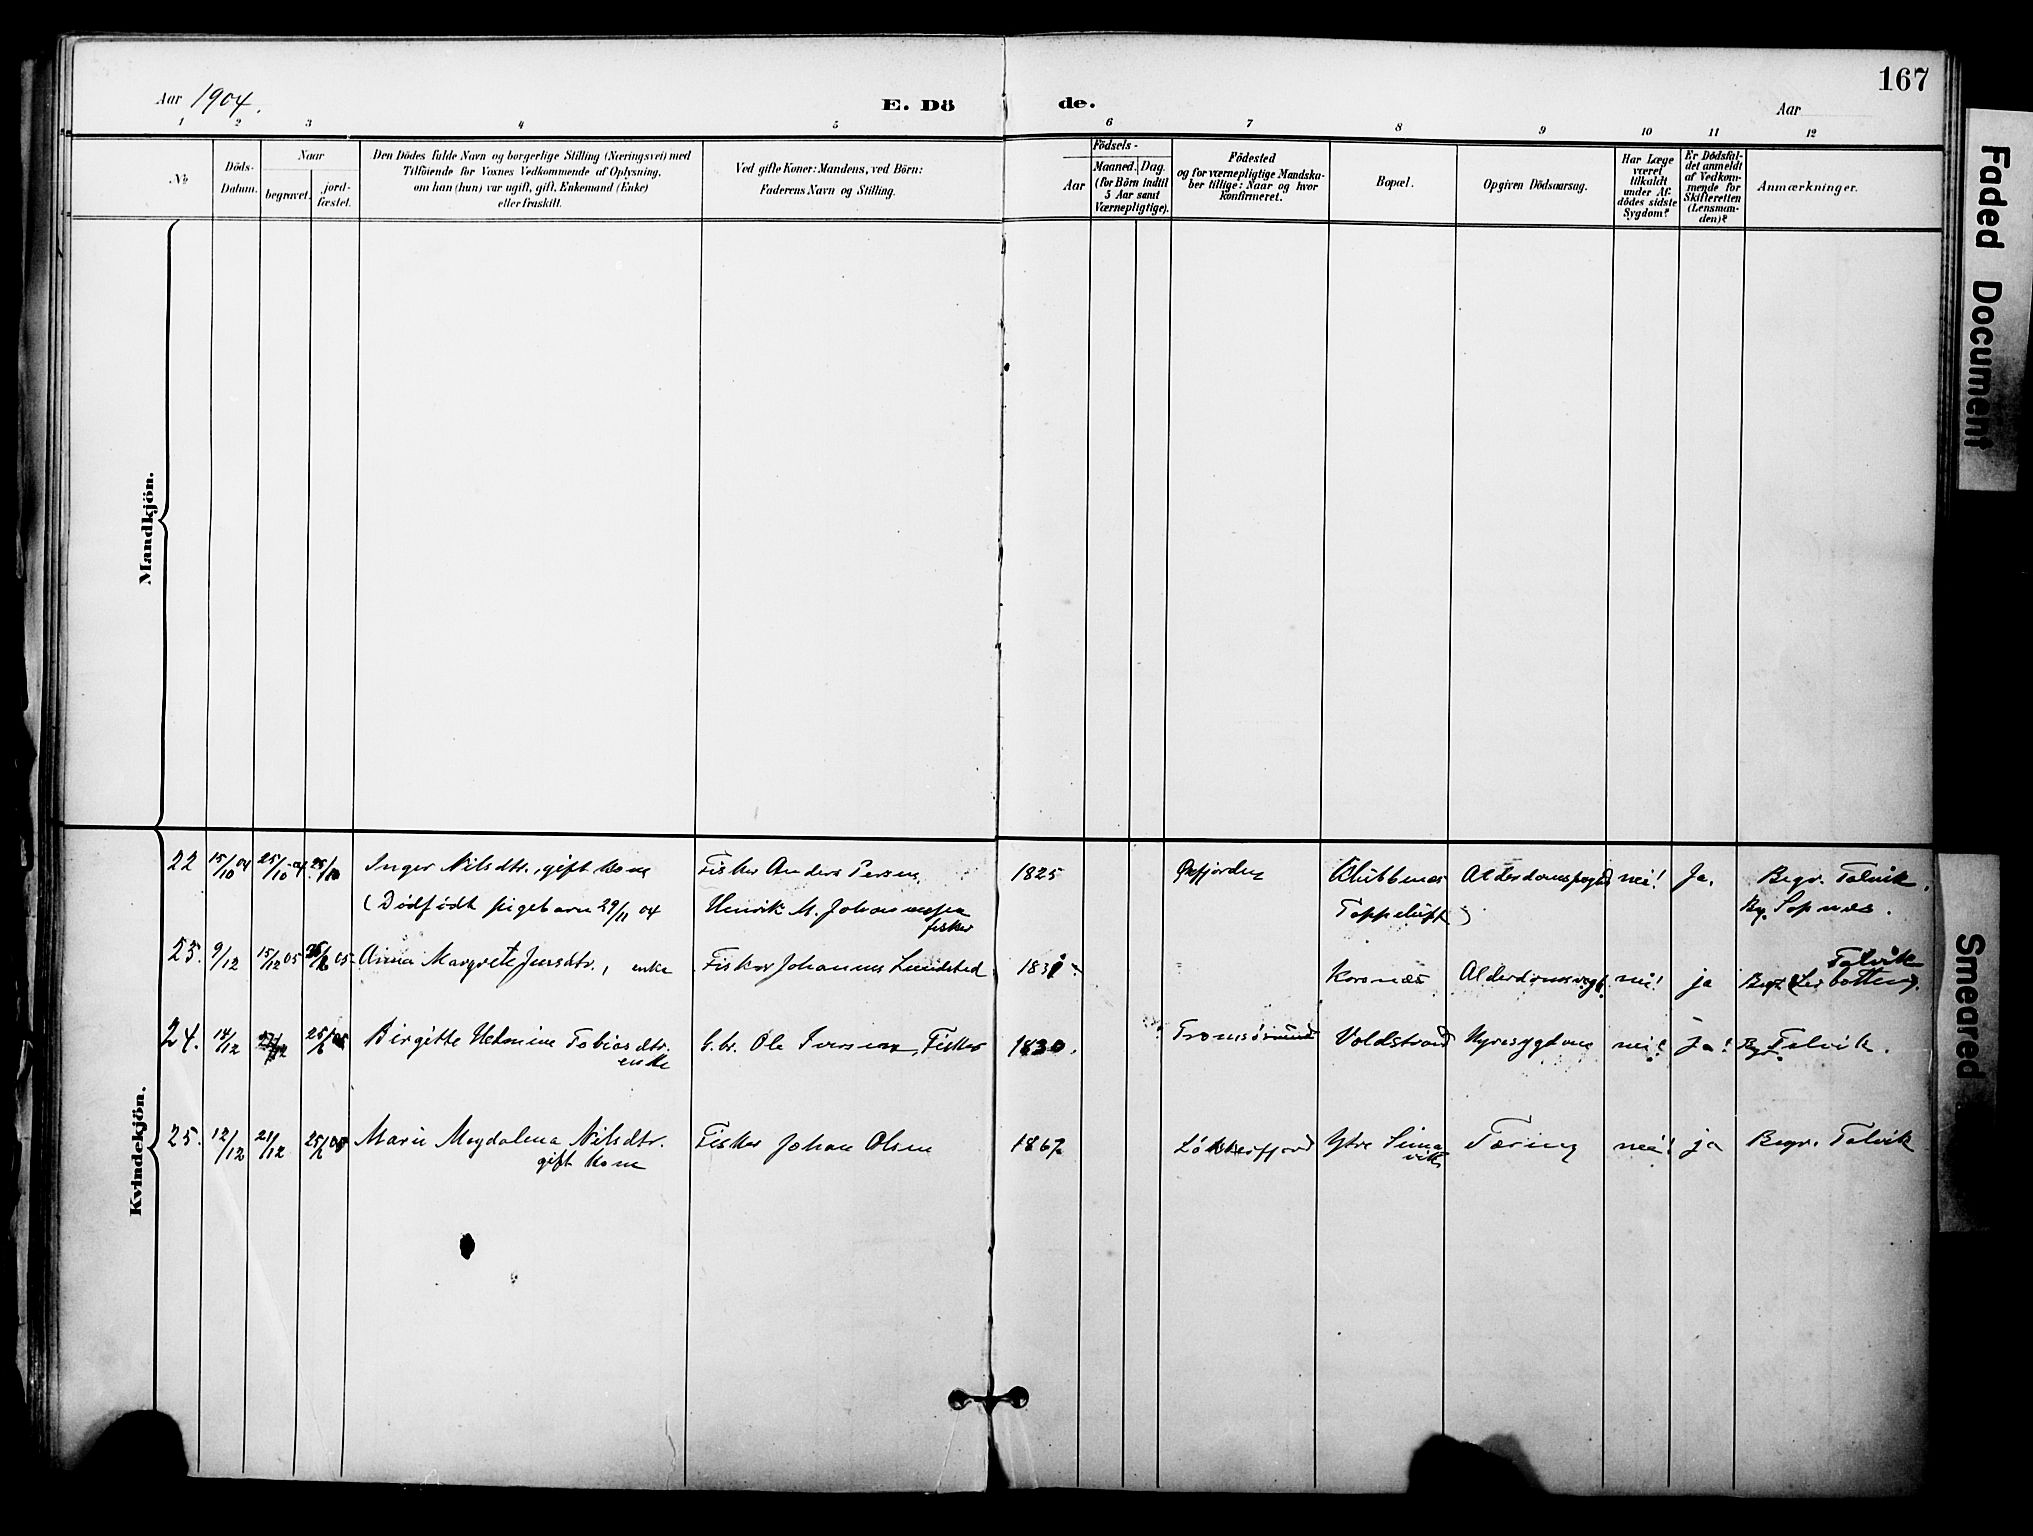 167
Aar 1904.
E. Dö de.
Aar
1 2 3 4 5 6 7 8 9 10 11 12
No
Döds-Datum.
Naar
begravet.
jord-fæstet.
Den Dödes fulde Navn og borgerlige Stilling (Næringsvei) med
Tilföiende for Voxnes Vedkommende af Oplysning,
om han (hun) var ugift, gift, Enkemand (Enke)
eller fraskilt.
Ved gifte Koner: Mandens, ved Börn:
Faderens Navn og Stilling.
Födsels-
Aar
Maaned. Dag.
(for Börn indtil
5 Aar samt
Værnepligtige).
Födested
og for værnepligtige Mandska-
ber tillige: Naar og hvor
konfirmeret.
Bopæl.
Opgiven Dödsaarsag.
Har Læge
været
tilkaldt
under Af-
dödes sidste
Sygdom?
Er Dödsfal-
det anmeldt
af Vedkom-
mende for
Skifteretten
(Lensman-
den)?
Anmærkninger.
Mandkjön.
Kvindekjön.
22 15/10 04 25/10 04 25/10 Inger Nilsdtr., gift kone Fisker Anders Persen 1825 Klubbnæs nei! Ja. Begr. Talvik.
(Dødfødt pigebarn 29/11 04 Henrik M. Johannessen Toppeluft) Bg. Sopnæs.
fisker
23. 9/12 15/12 05 05 Anna Margrete Jensdtr., enke Fisker Johannes Lundsted Korsnæs nei! ja Talvik
14/12 Birgitte Helmine Tobiasdtr. Ole Iversen, Fisker 1830. Tromsøsund Voldstrand Nyresygdom nei! ja! Talvik.
enke
25. 12/12 21/12 25/6 05 Marie Magdalena Nilsdtr. Fisker Johan Olsen 1867 Ytre Sima Tæring nei! ja Begr. Talvik
gift kone vik
Faded Document
Smeared